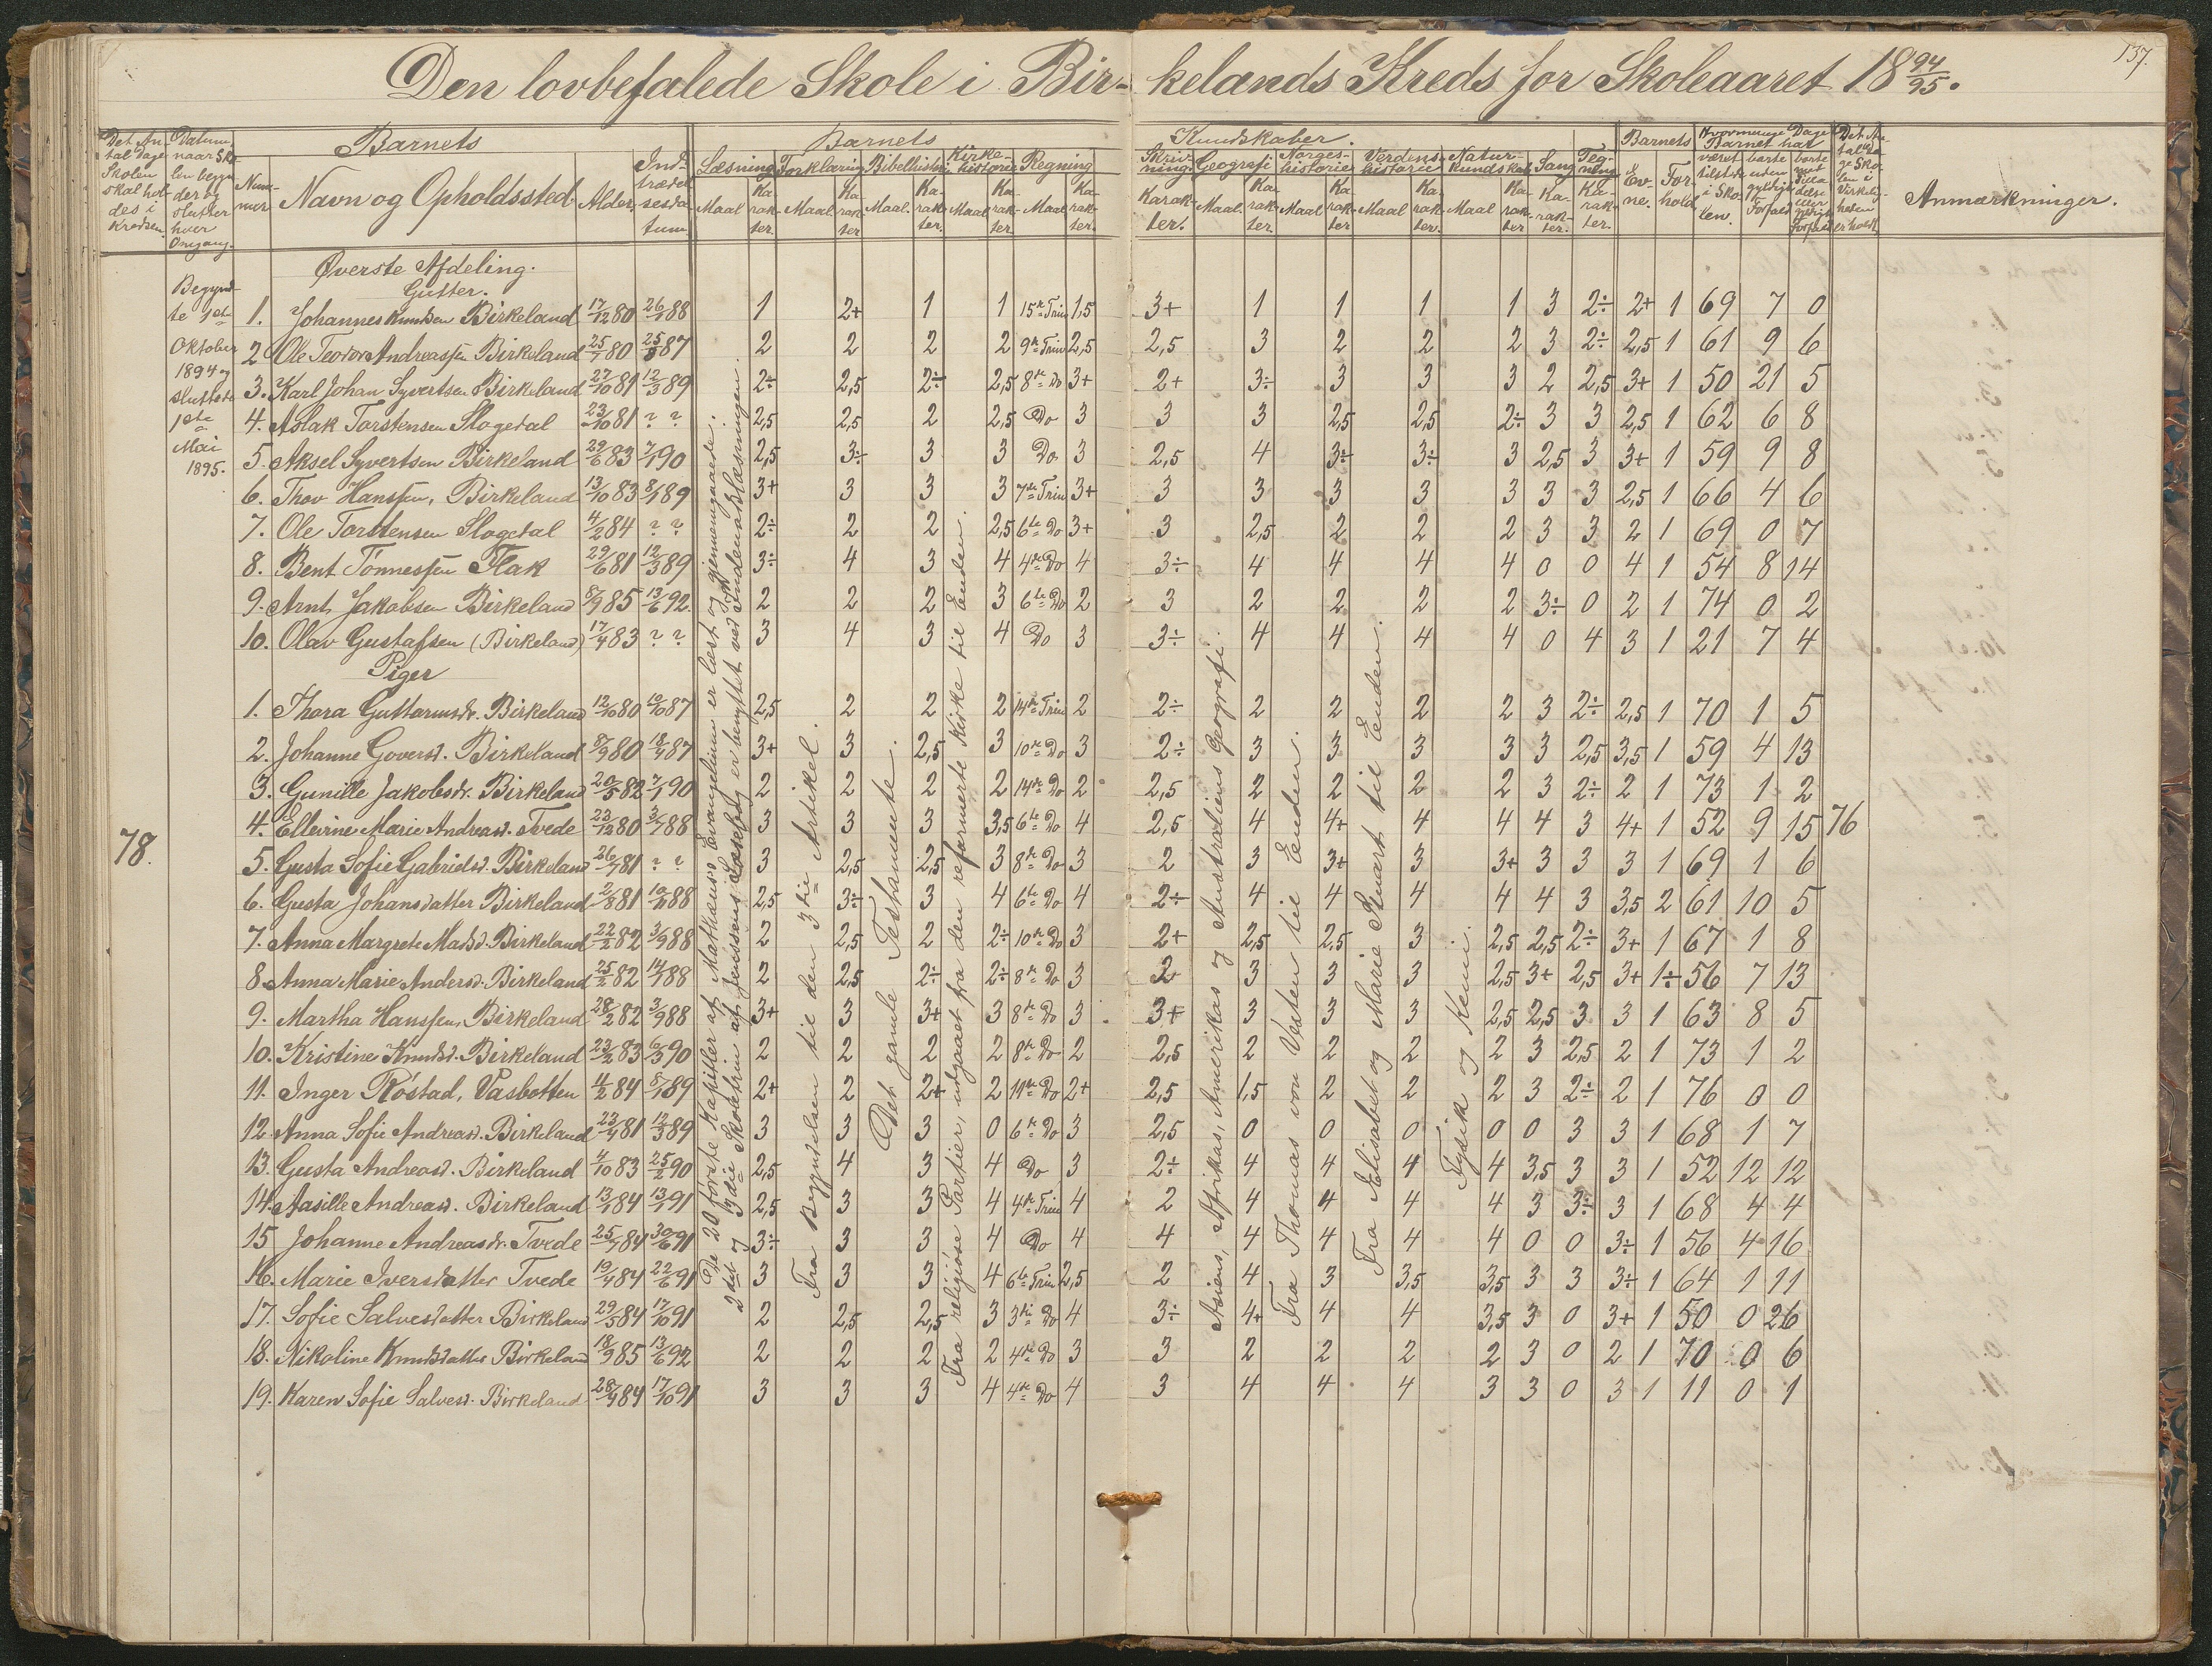 137.
Den lovbefalede Skole i Bir- kelands Kreds for Skoleaaret 18 94/95.
Det An- tal Dage Skolen skal hol- des i Kredsen.
Datum naar Sko- len begyn- der og slutter hver Omgang.
Barnets
Num- mer
Navn og Opholdssted.
Alder.
Ind- trædel- sesda- tum.
Barnets Kundskaber.
Læsning Maal Ka- rak- ter.
Forklaring Maal Ka- rak- ter
Bibelhistorie Maal. Ka- rak- ter.
Kirke- historie Maal Ka- rak- ter.
Regning Maal Ka- rak- ter.
Skriv- ning. Karak- ter.
Geografi Maal. Ka- rak- ter.
Norges- historie Maal Ka- rak- ter
Verdens- historie Maal Ka- rak- ter.
Natur- kundskab Maal Ka- rak- ter
Sang Ka- rak- ter.
Teg- ning Ka- rak- ter.
Barnets Ev- ne. For- hold
Hvormange Dage Barnet har været tilstede i Sko- len. borte uden gyldigt Forfald borte
Det An- tal Da- ge Sko- len i Virkelig- heden er holdt.
Anmærkninger.
Begynd- te 1ste Oktober 1894 og sluttede 1ste Mai 1895.
78.
76
Øverste Afdeling.
Gutter.
1. Johannes Knudsen Birkeland 17/12 80 26/1 88 1 2+ 1 1 15de Trin 1,5 3+ 1 1 1 1 3 2÷ 2+ 1 69 7 0
2. Ole Teodor Andreassen Birkeland 25/1 80 25/8 87 2 2 2 2 9de Trin 2,5 2,5 3 2 2 2 3 2÷ 2,5 1 61 9 6
3. Karl Johan Syvertsen Birkeland 27/10 81 12/3 89 2÷ 2,5 2÷ 2,5 8de Do 3+ 2+ 3÷ 3 3 3 2 2,5 3+ 1 50 21 5
4. Aslak Torstensen Slogedal 23/10 81 ? ? 2,5 2,5 2 2,5 Do 3 3 3 2,5 2,5 2÷ 3 3 2,5 1 62 6 8
5. Aksel Syvertsen Birkeland 29/6 83 7/1 90 2,5 3÷ 3 3 Do 3 2,5 4 3÷ 3÷ 3 2,5 3 3+ 1 59 9 8
6. Thov Hanssen, Birkeland 13/10 83 8/1 89 3+ 3 3 3 7de Trin 3+ 3 3 3 3 3 3 3 2,5 1 66 4 6
7. Ole Torstensen Slogedal 4/2 84 ? ? 2÷ 2 2 2,5 6te Do 3+ 3 2,5 2 2 2 3 3 2 1 69 0 7
8. Bent Tønnessen Flak 29/6 81 12/3 89 3÷ 4 3 4 4de Do 4 3÷ 4 4 4 4 0 0 4 1 54 8 14
9. Arnt Jakobsen Birkeland 8/9 85 13/6 92. 2 2 2 3 6te Do 2 3 2 2 2 2 3÷ 0 2 1 74 0 2
10. Olav Gustafsen (Birkeland) 17/4 83 ? ? 3 4 3 4 Do 3 3÷ 4 4 4 4 0 4 3 1 21 7 4
Piger
1. Thora Guttormsdr. Birkeland 12/10 80 10/10 87 2,5 2 2 2 14de Trin 2 2÷ 2 2 2 2 3 2÷ 2,5 1 70 1 5
2. Johanne Goversd. Birkeland 8/9 80 18/4 87 3+ 3 2,5 3 10de Do 3 2÷ 3 3 3 3 3 2,5 3,5 1 59 4 13
3. Gunille Jakobsdr. Birkeland 20/5 82 7/1 90 2 2 2 2 14de Do 2 2,5 2 2 2 2 3 2÷ 2 1 73 1 2
4. Ellevine Marie Andreasd. Tvede 23/12 80 3/7 88 3 3 3 3,5 6te Do 4 2,5 4 4+ 4 4 4 3 4+ 1 52 9 15
5. Gusta Sofie Gabrielsd. Birkeland 26/7 81 ? ? 3 2,5 2,5 3 8de Do 3 2 3 3+ 3 3+ 3 3 3 1 69 1 6
6. Gusta Johansdatter Birkeland 2/8 81 10/11 88 2,5 3÷ 3 4 6te Do 4 2÷ 4 4 4 4 4 3 3,5 2 61 10 5
7. Anna Margrete Madsd. Birkeland 22/2 82 3/9 88 2 2,5 2 2÷ 10de Do 3 2+ 2,5 2,5 3 2,5 2,5 2÷ 3+ 1 67 1 8
8. Anna Marie Andersd. Birkeland 25/2 82 14/7 88 2 2,5 2÷ 2÷ 8de Do 3 2+ 3 3 3 2,5 3+ 2,5 3+ 1÷ 56 7 13
9. Martha Hanssen, Birkeland 28/2 82 3/9 88 3+ 3 3+ 3 8de Do 3 3+ 3 3 3 2,5 2,5 3 3 1 63 8 5
10. Kristine Knudsd. Birkeland 23/2 83 6/3 90 2 2 2 2 8de Do 2 2,5 2 2 2 2 3 2,5 2 1 73 1 2
11. Inger Røstad, Vasbotten 4/2 84 8/1 89 2+ 2 2+ 2 11de Do 2+ 2,5 1,5 2 2 2 3 2÷ 2 1 76 0 0
12. Anna Sofie Andreasd. Birkeland 23/4 81 12/3 89 3 3 3 0 6te Do 3 2,5 0 0 0 0 0 3 3 1 68 1 7
13. Gusta Andreasd. Birkeland 4/10 83 25/2 90 2,5 4 3 4 Do 3 2÷ 4 4 4 4 3,5 3 3 1 52 12 12
14. Aasille Andreasd. Birkeland 13/1 84 13/1 91 2,5 3 3 4 4de Trin 4 2 4 4 4 4 3 3÷ 3 1 68 4 4
15 Johanne Andreasdr. Tvede 25/7 84 30/6 91 3÷ 3 3 4 Do 4 4 4 4 4 4 0 0 3÷ 1 56 4 16
16. Marie Iversdatter Tvede 19/4 84 22/6 91 3 3 3 4 6te Trin 2,5 2 4 3 3,5 3,5 3 3 3÷ 1 64 1 11
17. Sofie Salvesdatter Birkeland 29/5 84 17/10 91 2 2,5 2,5 3 3die Do 4 3÷ 4+ 4 4 3,5 3 0 3+ 1 50 0 26
18. Nikoline Knudsdatter Birkeland 18/9 85 13/6 92 2 2 2 2 4de Do 3 3 2 2 2 2 3 0 2 1 70 0 6
19. Karen Sofie Salvesd. Birkeland 28/9 84 17/10 91 3 3 3 4 4de Do 4 3 4 4 4 3 3 0 3 1 11 0 1
De 20 første Kapitler af Mathæus Evangelium er læst og gjennemgaaede.
2det og 3die Skoletrin af Jenssens Læsebog er benyttet ved Indenadslæsningen.
Fra Begyndelsen til den 3die Artikel.
Det gamle Testamente.
Fra religiøse Partier, udgaaet fra den reformerte Kirke til Enden.
Asiens, Afrikas, Amerikas og Australiens Geografi.
Fra Thomas von Vesten til Enden.
Fra Elisabet og Marie Stuart til Enden.
Fysik og Kemi.